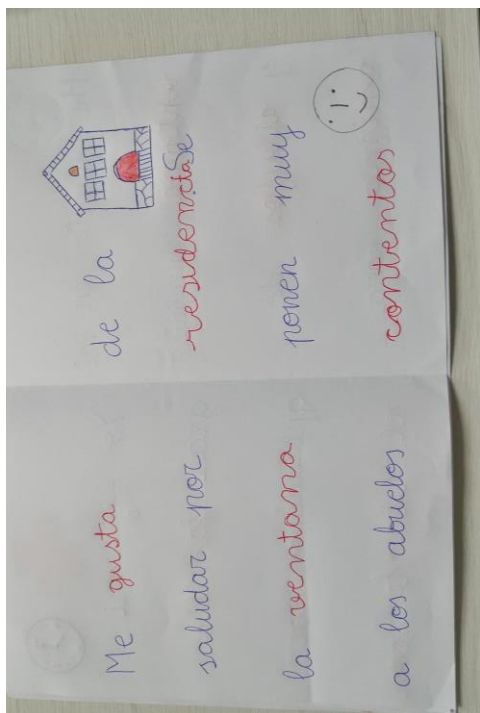 Me gusta
saludar por
la ventana
a los abuelos
de la
residencia. Se
ponen muy
contentos